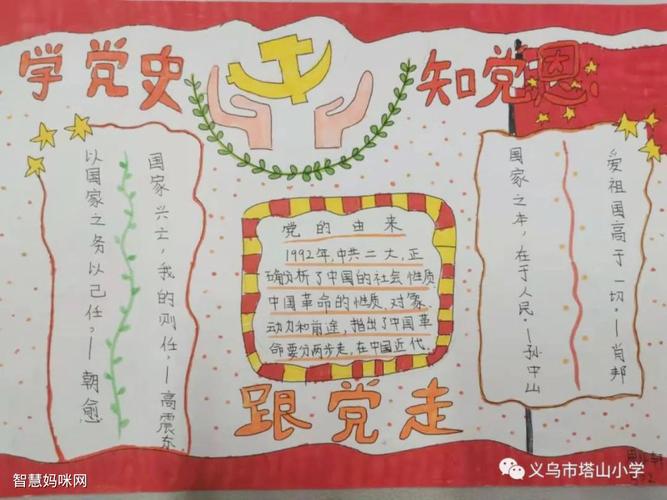 学党史
知党恩
国家兴士，我的则任。——高震东
以国家之务以己任。——朝愈
党的由来
1992年，中共二大，正
确分析了中国的社会性质
中国革命的性质、对象、
动力和前途，指出了中国革
命要分两步走，在中国近代。
爱祖国高于一切。——肖邦
国家之本，在于人民。——孙中山
跟党走
智慧妈咪网
义乌市塔山小学